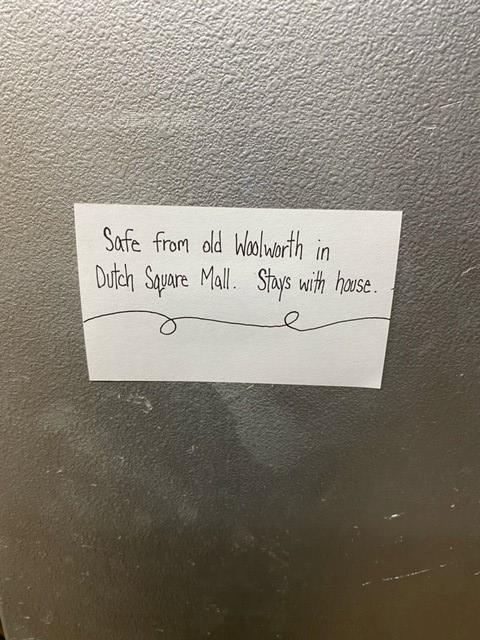 Safe from old Woolworth in
Dutch Square Mall. Stays with house.